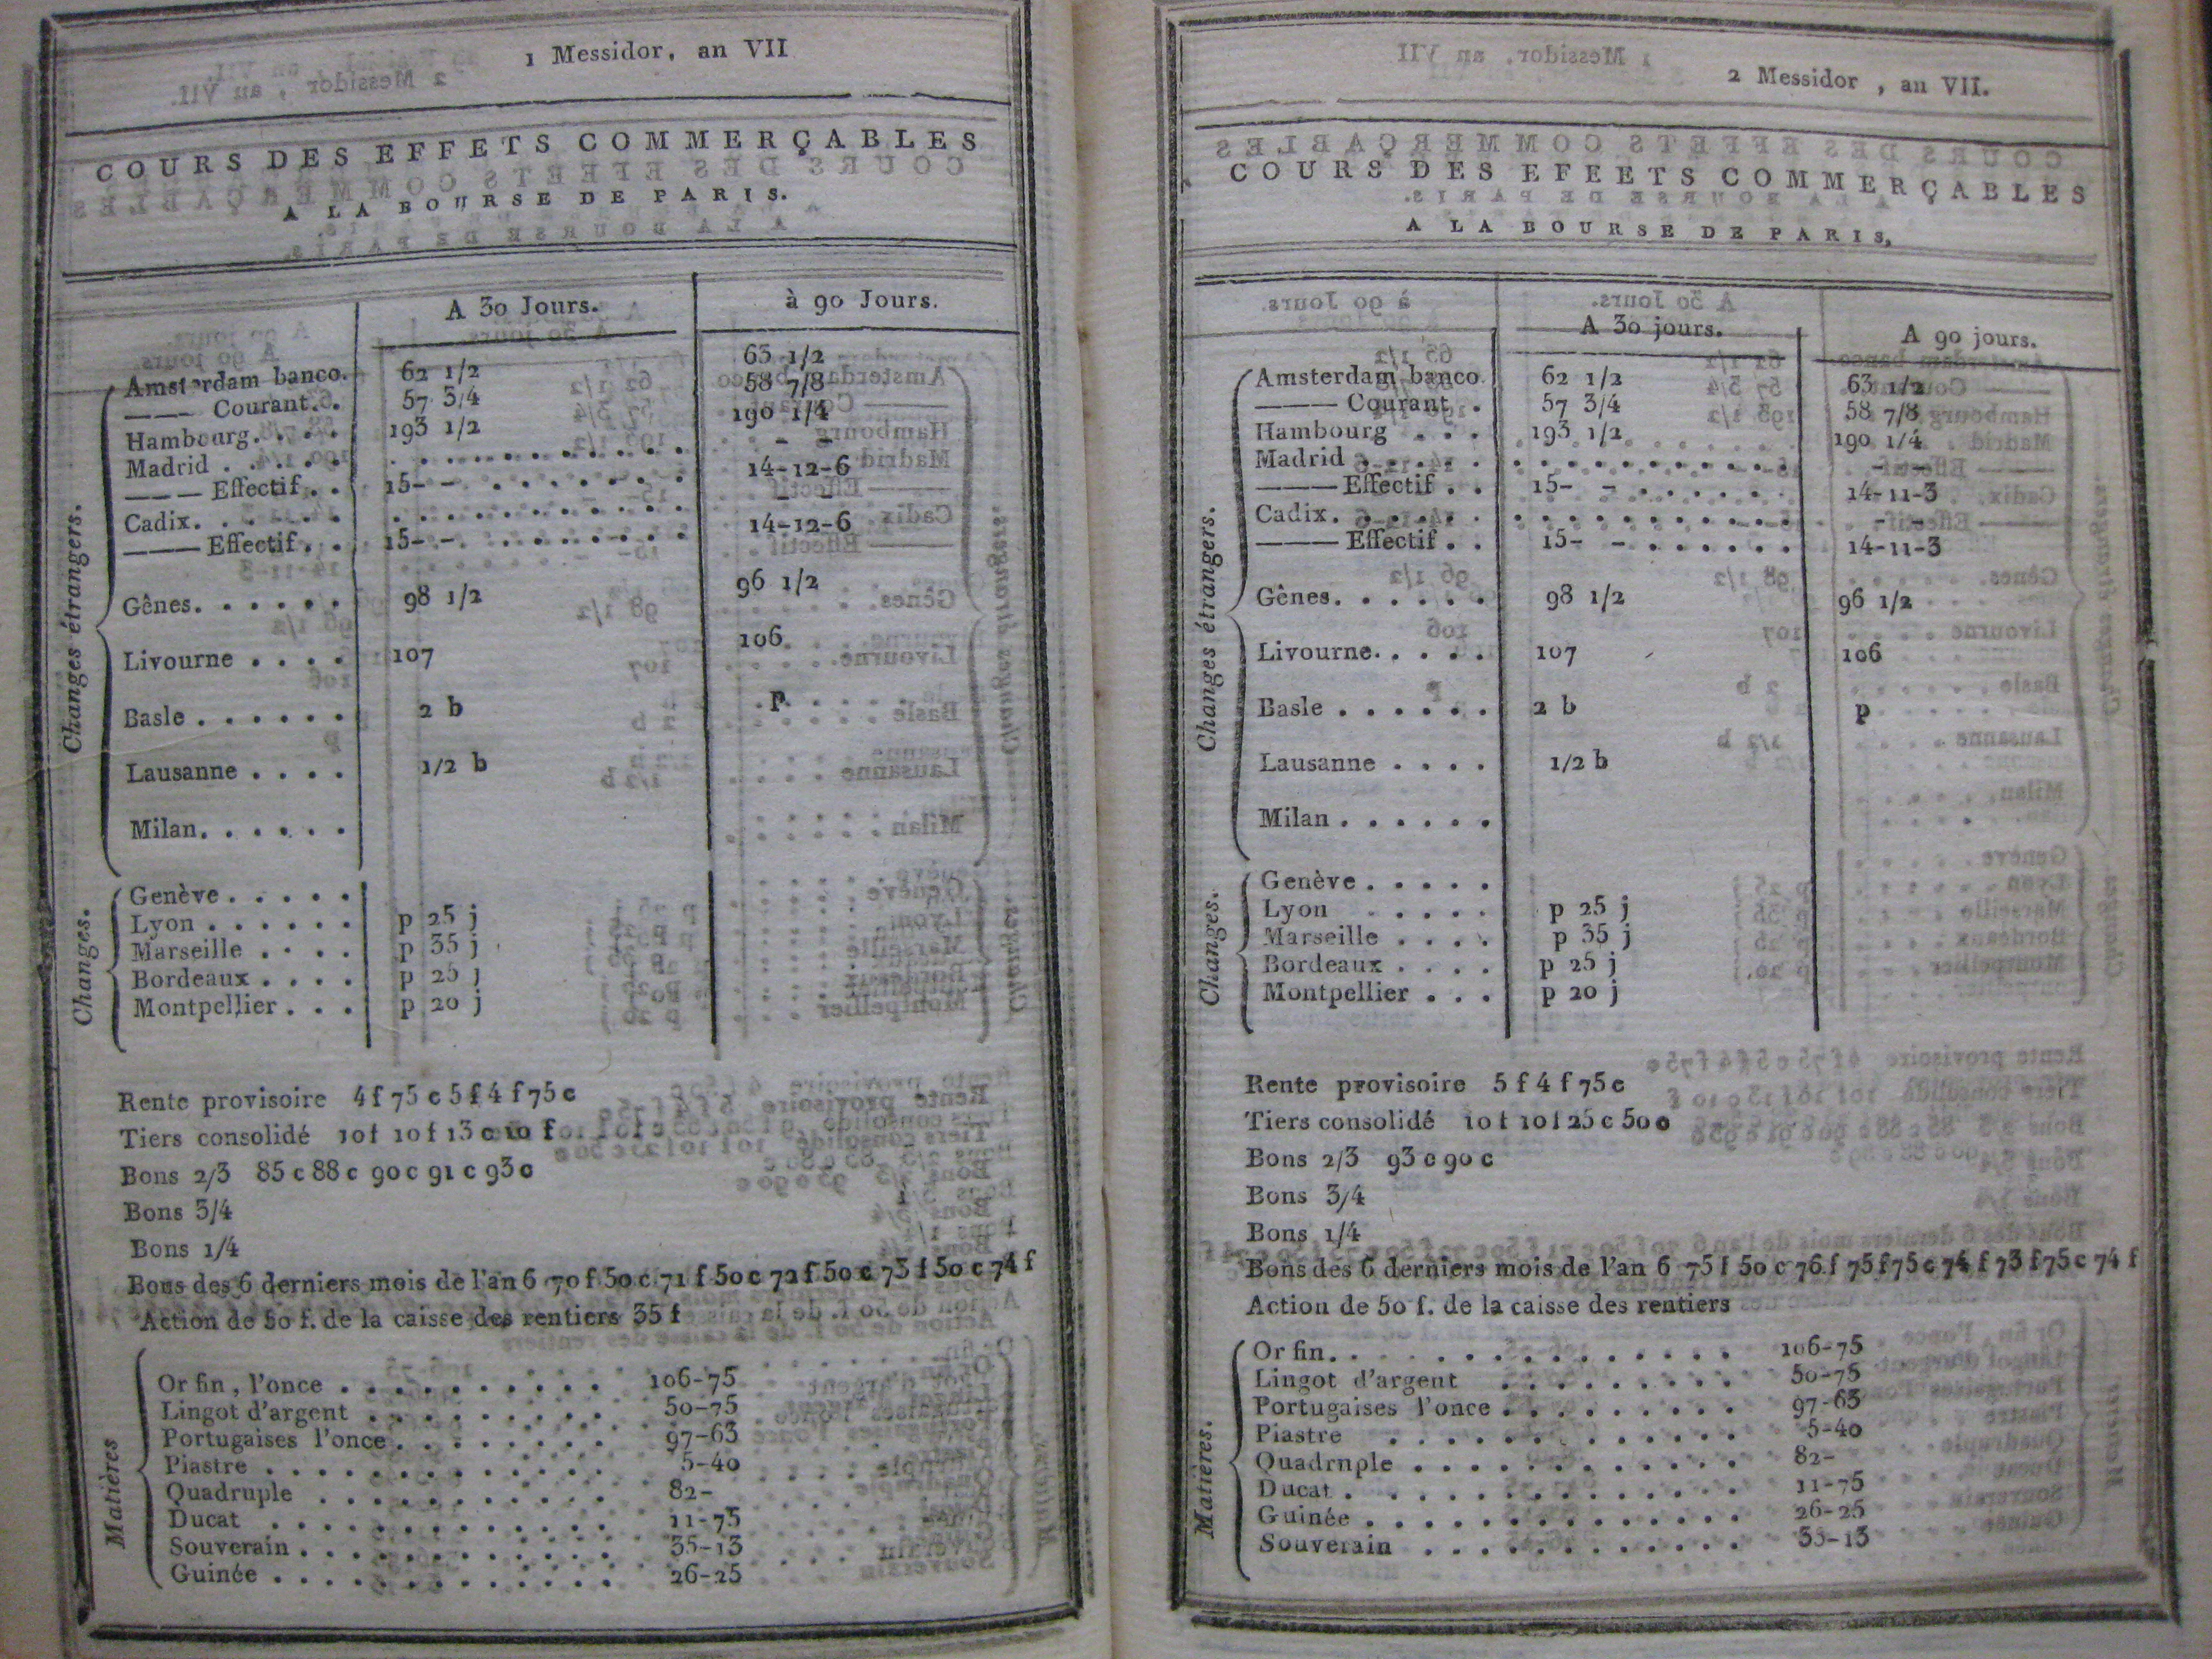 1 Messidor, an VII
COURS DES EFFETS COMMERÇABLES
A LA BOURSE DE PARIS.
A 30 Jours. à 90 Jours.
Changes étrangers.
Amsterdam banco. 62 1/2 63 1/2
——— Courant. . 57 3/4 58 7/8
Hambourg. . . . 193 1/2 190 1/4
Madrid . . . . . . . . . . . . . . . . - -
——— Effectif . . 15- - . . . . . . . 14-12-6
Cadix. . . . . . . . . . . . . . . . .
——— Effectif . . 15- - . . . . . . . 14-12-6
Gênes. . . . . . 98 1/2 96 1/2
Livourne . . . . 107 106
Basle . . . . . . 2 b p
Lausanne . . . . 1/2 b
Milan. . . . . .
Changes.
Genève . . . . .
Lyon . . . . . . p 25 j
Marseille . . . . p 35 j
Bordeaux . . . . p 25 j
Montpellier . . . p 20 j
Rente provisoire 4 f 75 c 5 f 4 f 75 c
Tiers consolidé 10 f 10 f 13 c 10 f
Bons 2/3 85 c 88 c 90 c 91 c 93 c
Bons 3/4
Bons 1/4
Bons des 6 derniers mois de l'an 6 70 f 50 c 71 f 50 c 72 f 50 c 73 f 50 c 74 f
Action de 50 f. de la caisse des rentiers 35 f
Matières
Or fin, l'once . . . . . . . . . . 106-75
Lingot d'argent . . . . . . . . . 50-75
Portugaises l'once . . . . . . . . 97-63
Piastre . . . . . . . . . . . . . 5-40
Quadruple . . . . . . . . . . . 82-
Ducat . . . . . . . . . . . . . 11-75
Souverain . . . . . . . . . . . . 35-13
Guinée . . . . . . . . . . . . . 26-25
2 Messidor , an VII.
COURS DES EFEETS COMMERÇABLES
A LA BOURSE DE PARIS,
A 30 jours. A 90 jours.
Changes étrangers.
Amsterdam banco 62 1/2 63 1/2
——— Courant . 57 3/4 58 7/8
Hambourg . . . 193 1/2 190 1/4
Madrid . . . . . . . . . . . . . . . . - -
——— Effectif . . 15- - . . . . . . 14-11-3
Cadix. . . . . . . . . . . . . . . . . - -
——— Effectif . . 15- - . . . . . . 14-11-3
Gênes. . . . . . 98 1/2 96 1/2
Livourne. . . . . 107 106
Basle . . . . . . 2 b p
Lausanne . . . . 1/2 b
Milan . . . . . .
Changes.
Genève . . . . .
Lyon . . . . p 25 j
Marseille . . . . p 35 j
Bordeaux . . . . p 25 j
Montpellier . . . p 20 j
Rente provisoire 5 f 4 f 75 c
Tiers consolidé 10 f 10 f 25 c 50 c
Bons 2/3 93 c 90 c
Bons 3/4
Bons 1/4
Bons des 6 derniers mois de l'an 6 75 f 50 c 76 f 75 f 75 c 74 f 73 f 75 c 74 f
Action de 50 f. de la caisse des rentiers
Matières.
Or fin. . . . . . . . . . . . . 106-75
Lingot d'argent . . . . . . . . . 50-75
Portugaises l'once . . . . . . . . . 97-63
Piastre . . . . . . . . . . . . 5-40
Quadrnple . . . . . . . . . . . . 82-
Ducat . . . . . . . . . . . . . 11-75
Guinée . . . . . . . . . . . . . 26-25
Souverain . . . . . . . . . . . . 35-13